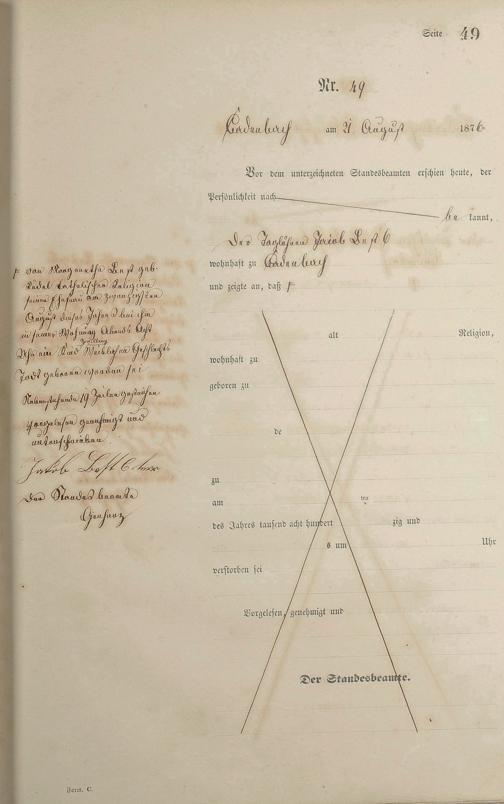 Seite 49
Nr. 49
Cadenbach am 21 August 1876
Vor dem unterzeichneten Standesbeamten erschien heute, der
Persönlichkeit nach
be kannt,
der Taglöhner Jacob Best 6
wohnhaft zu Cadenbach
und zeigte an, daß
von Margaretha Best geb.
katholischer Religion
seiner Ehefrau am zwanzigsten
August dieses Jahres bei ihm
in seiner Wohnung Abends Acht
Uhr ein Kind Weiblichen Geschlechts
Zwilling
Todt geboren worden sei
19 Zeilen gestrichen
Vorgelesen genehmigt und
unterschrieben
Jakob Best 6
Der Standesbeamte
alt Religion,
wohnhaft zu
geboren zu
de
zu
am ten
des Jahres tausend acht hundert zig und
s um Uhr
verstorben sei
Vorgelesen, genehmigt und
Der Standesbeamte.
Form. C.